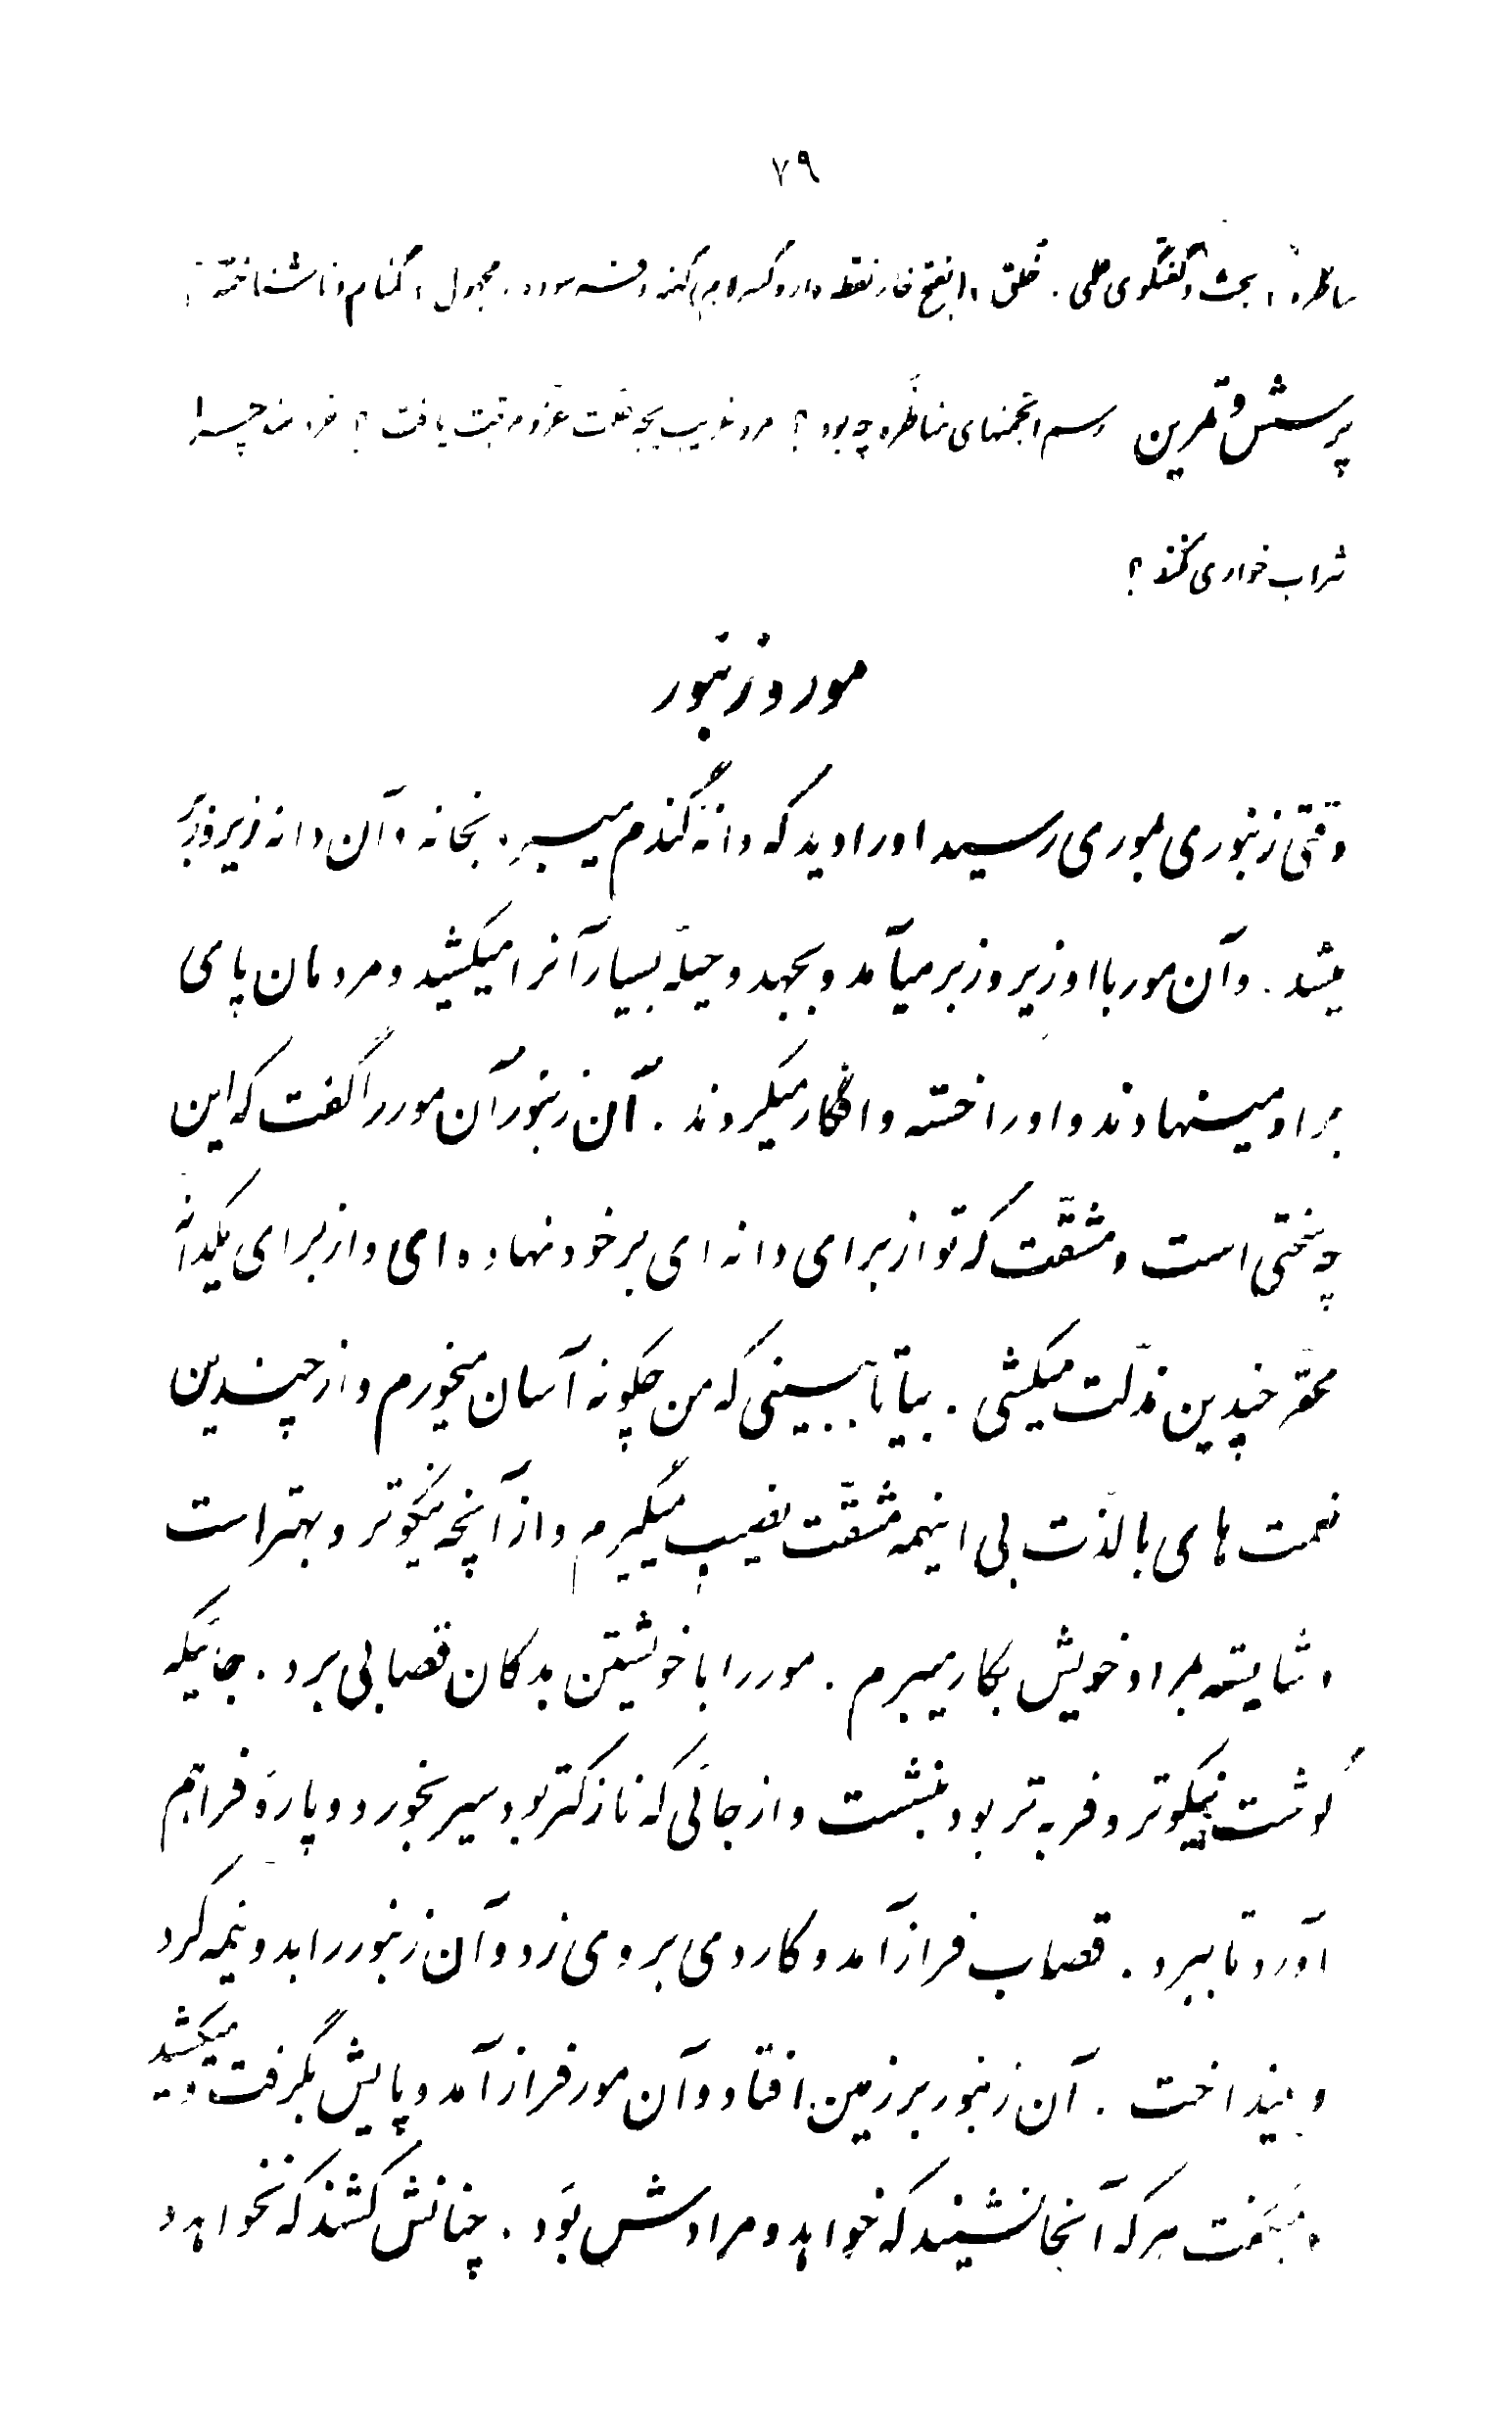 ۷۹
مناظره: بحث و گفتگوی علمی. خَلَق: بفتح خاء نقطه دار و کسر لام، کهنه و فرسوده. مجهول: گمنام و ناشناخته.
پرسش و تمرین رسم انجمنهای مناظره چه بود؟ مرد غریب بچه علت عزّ و مرتبت یافت؟ خردمند چرا
شراب خواری نکند؟
مور و زنبور
وقتی زنبوری بموری رسید او را دید که دانهٔ گندم میبرد بخانه و آن دانه زیر و زبر
میشد. و آن مور با او زیر و زبر میآمد و بجهد و حیلهٔ بسیار آنرا میکشید و مردمان پای
بر او مینهادند و او را خسته و افگار میکردند. آن زنبور آن مور را گفت که این
چه سختی است و مشقّت که تو از برای دانه ای بر خود نهاده ای و از برای یکدانهٔ
محقّر چندین مذلّت میکشی. بیا تا ببینی که من چگونه آسان میخورم و از چندین
نعمت های با لذّت بی اینهمه مشقّت نصیب میگیرم و از آنچه نیکوتر و بهتر است
و شایسته بمراد خویش بکار میبرم. مور را با خویشتن بدکان قصابی برد. جائیکه
گوشت نیکوتر و فربه تر بود بنشست و از جائی که نازکتر بود سیر بخورد و پارهٔ فراهم
آورد تا ببرد. قصاب فراز آمد و کاردی بر وی زد و آن زنبور را بدو نیمه کرد
و بینداخت. آن زنبور بر زمین افتاد و آن مور فراز آمد و پایش بگرفت و میکشید
و میگفت هر که آنجا نشیند که خواهد و مرادش بوَد. چنانش کشند که نخواهد و